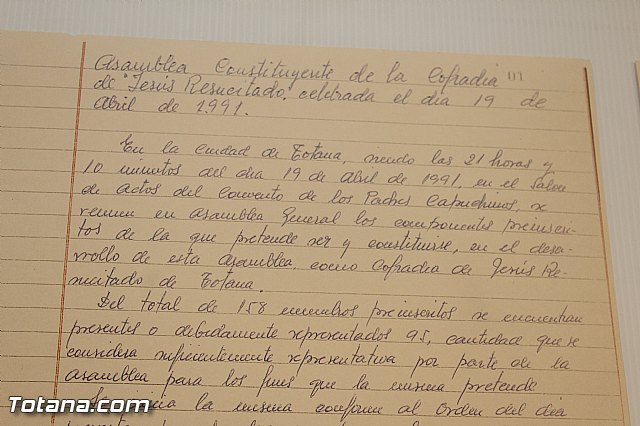 Asamblea Constituyente de la Cofradía
de "Jesús Resucitado", celebrada el día 19 de
Abril de 1.991.
En la Ciudad de Totana, siendo las 21 horas y
10 minutos del día 19 de Abril de 1.991, en el salón
de actos del Convento de los Padres Capuchinos, se
reunen en Asamblea General los componentes preinscri-
tos de la que pretende ser y constituirse, en el desa-
rrollo de esta Asamblea, como Cofradía de Jesús Re-
sucitado de Totana.
Del total de 158 miembros preinscritos se encuentran
presentes o debidamente representados 95, cantidad que se
considera suficientemente representativa por parte de la
asamblea para los fines que la misma pretende
la misma conforme al Orden del día
Totana.com